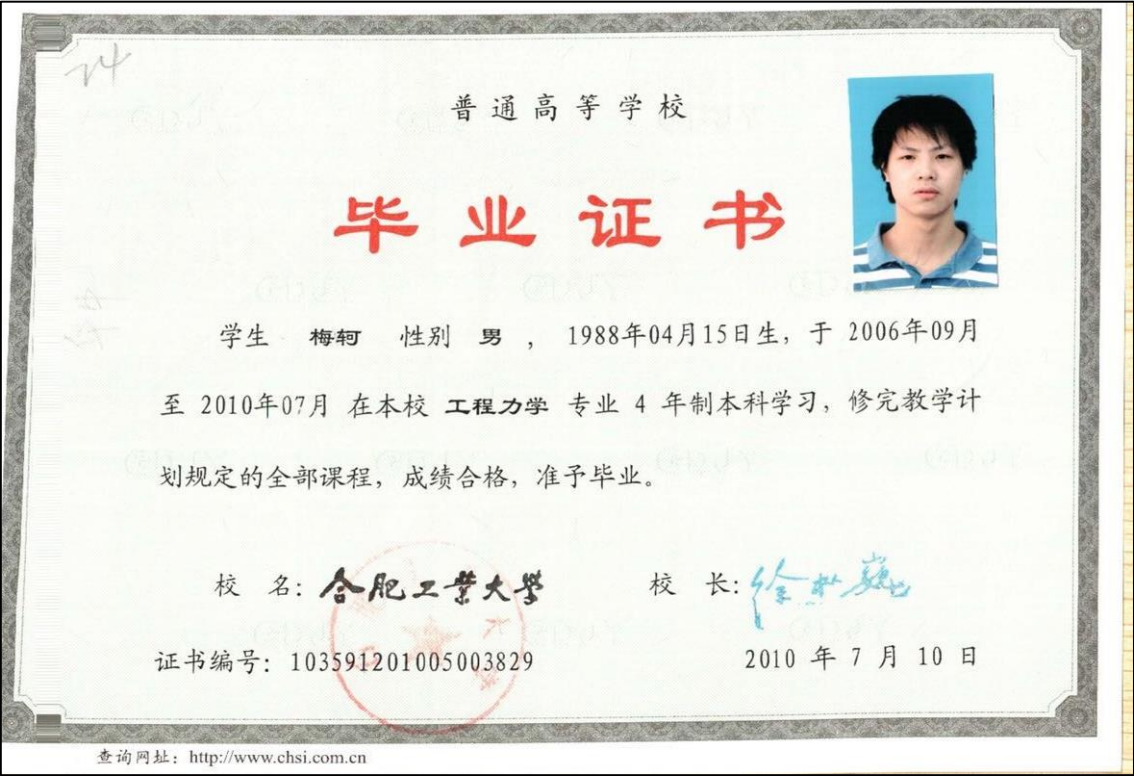 24
普通高等学校
毕业证书
学生 梅轲 性别 男 ， 1988年04月15日生，于 2006年09月
至 2010年07月 在本校 工程力学 专业 4 年制本科学习，修完教学计
划规定的全部课程，成绩合格，准予毕业。
校 名：合肥工业大学 校 长：徐枞巍
证书编号：103591201005003829 2010 年 7 月 10 日
查询网址：http://www.chsi.com.cn